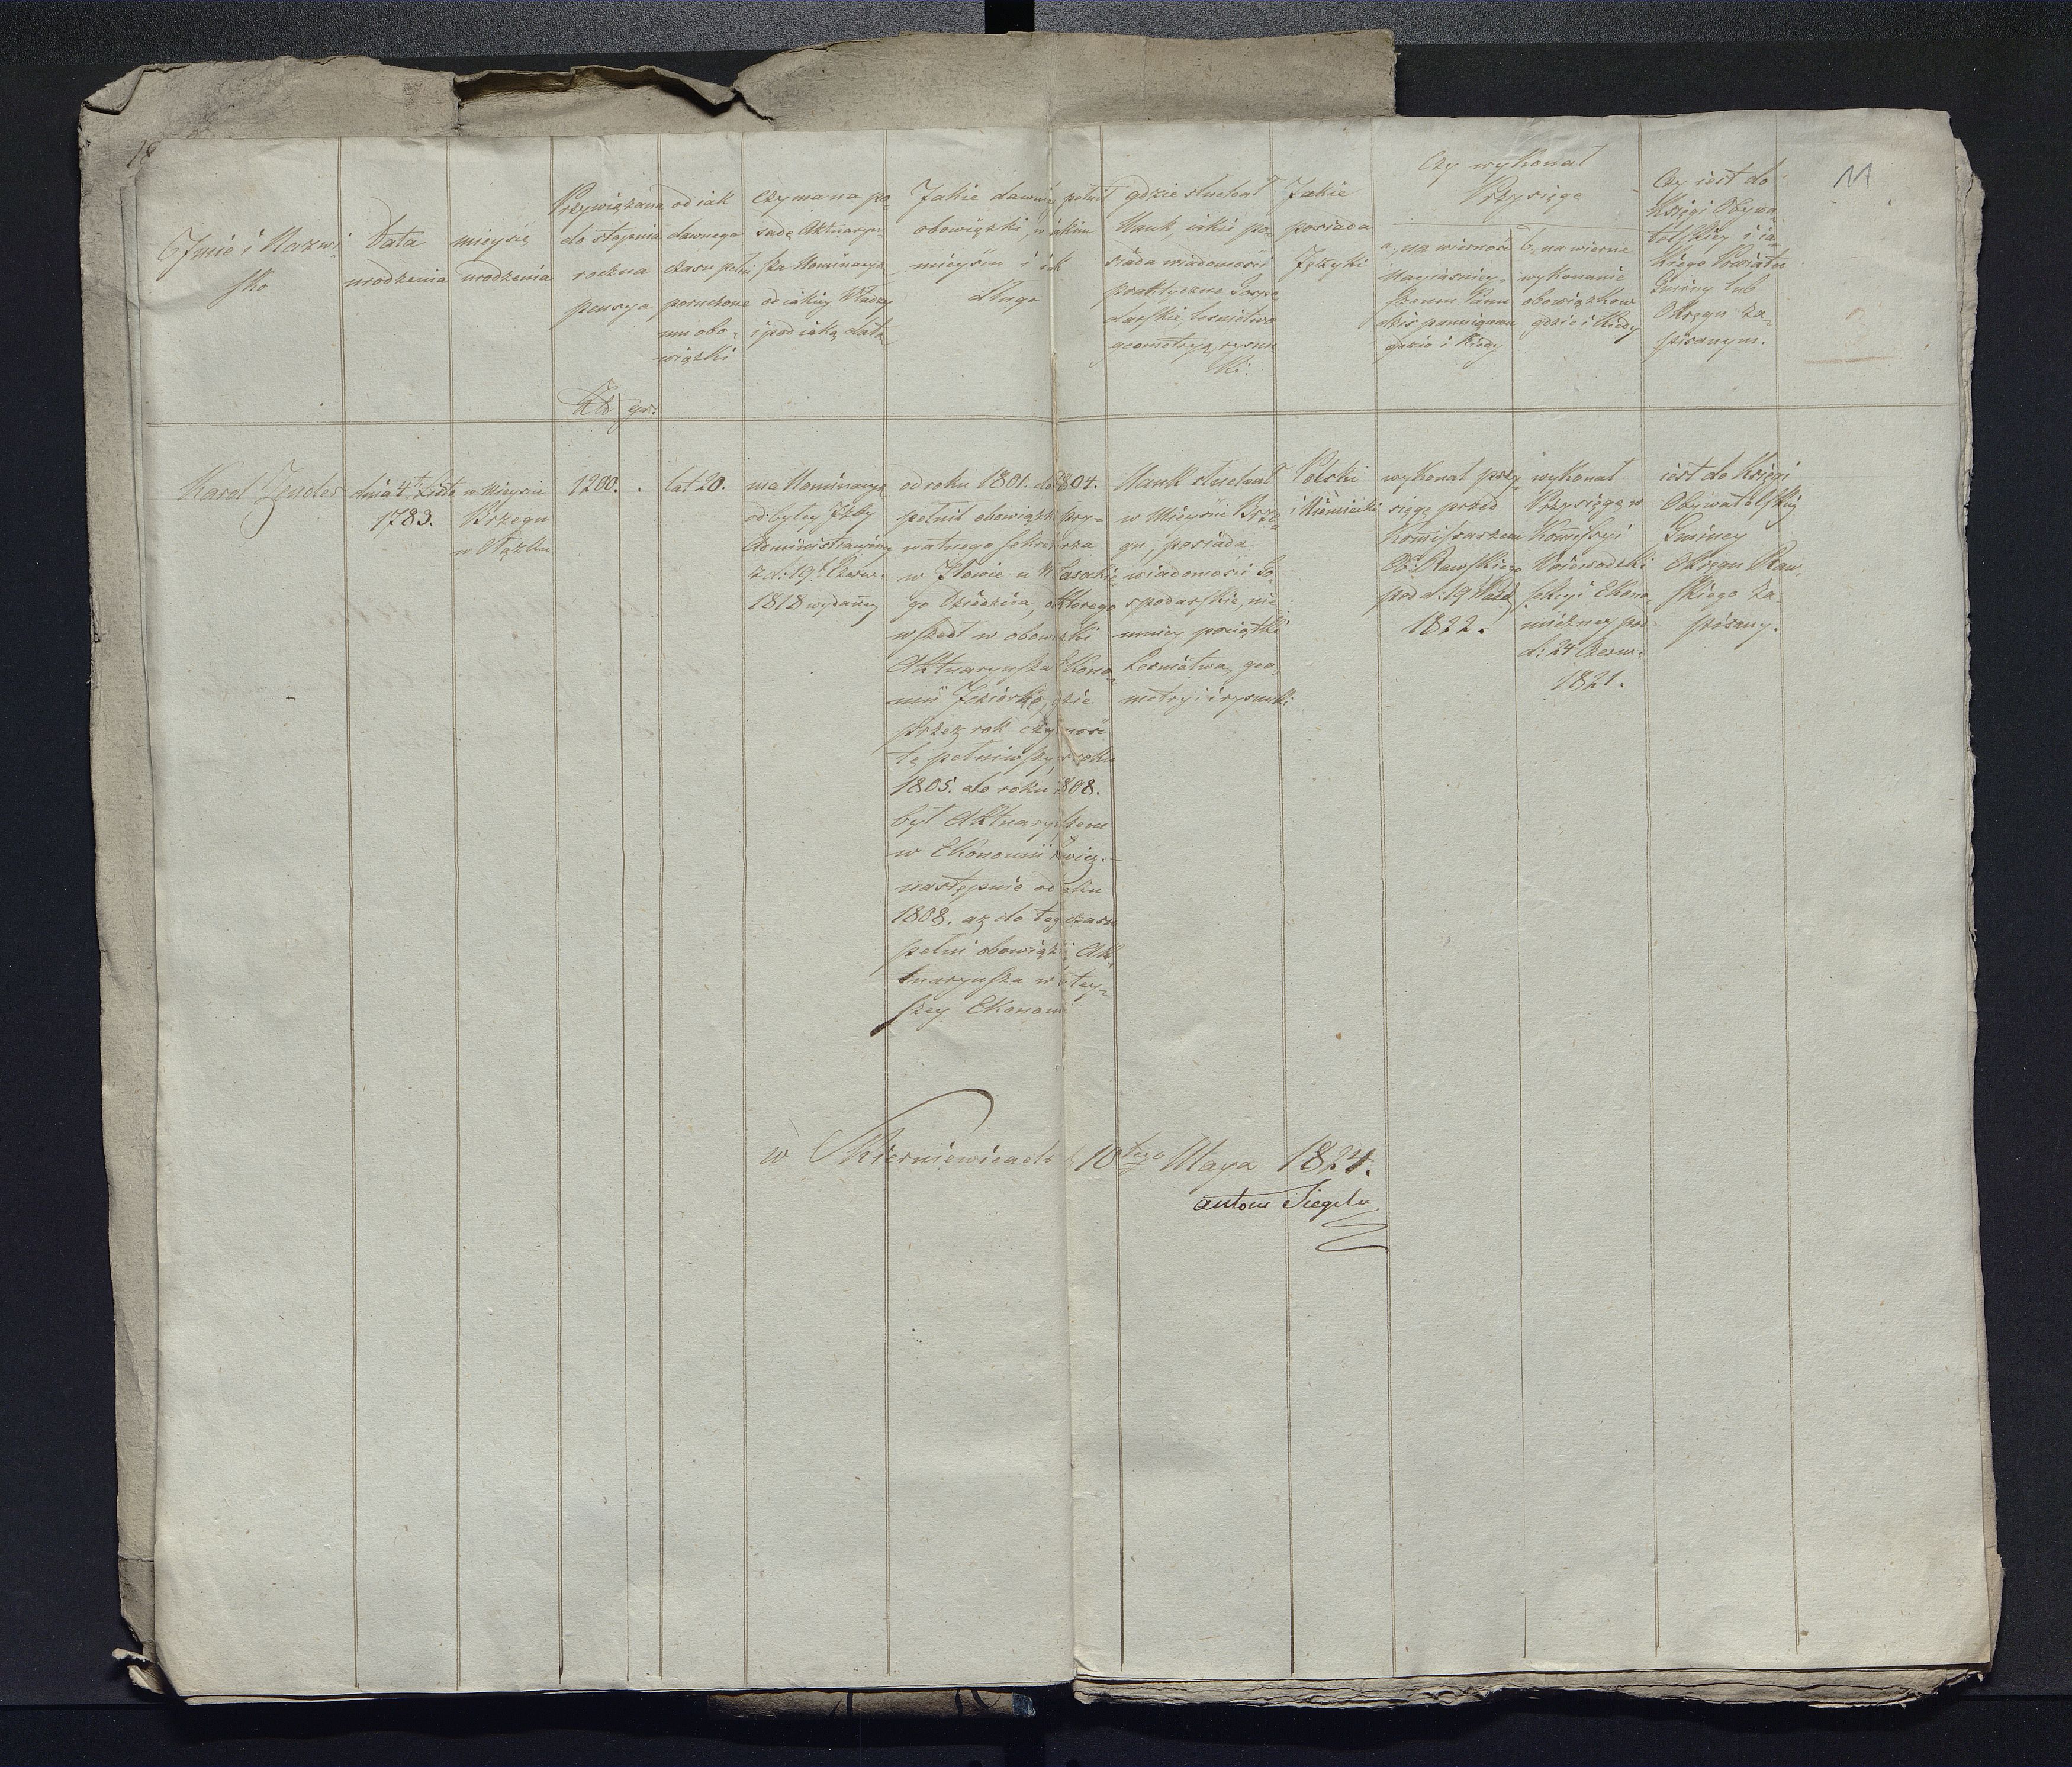 11
Imie i Nazwi
sko
Data
urodzenia
mieysce
urodzenia
Przywiązana
do stopnia
roczna
pensya
Zło gr:
od iak
dawnego
czasu pełni
poruczone
mu obo-
wiązki
czy ma na po-
sadę Aktuaryu-
sza Nominacyą
od iakiey Władzy
i pod iaką datą
Jakie dawniey pełnił
obowiązki, w iakim
mieyscu i iak
długo
gdzie słuchał
Nauk, iakie po-
siada wiadomości
praktyczne Gospo
darskie, leśnictwa
geometryą rysun
ki.
Jakie
posiada
Języki
Czy wykonał
Przysięgę
a, na wierność
Nayiaśniey-
szemu Panu
dziś panuiącemu
gdzie i kiedy
b, na wierne
wykonanie
obowiązków
gdzie i kiedy
Czy iest do
Księgi Obywa-
telskiey i ia-
kiego Powiatu
Gminy lub
Okręgu za-
pisanym.
Karol Zendler
dnia 4
1783.
w Mieyscie
Brzegu
w Szląsku
1200. .
lat 20.
ma Nominacyą
od byłey Izby
Administracyiney
z d: 19 Czerw:
1818 wydaney
od roku 1801. do 1804.
pełnił obowiązki pry-
watnego Sekretarza
w Iłowie u
go Dziedzica, od którego
wszedł w obowiązki
Aktuaryusza Ekono-
mii Jeziorko, gdzie
przez rok czynność
tę pełniwszy, z roku
1805. do roku 1808.
był Aktuaryuszem
w Ekonomii
następnie od roku
1808. aż do tego czasu
pełni obowiązki Ak-
tuaryusza w tutey-
szey Ekonomii
Nauk słuchał
w Mieyscie Brze-
gu, posiada
wiadomości Go-
spodarskie, nie
mniey początki
Leśnictwa, geo-
metryi i rysunki
Polski
i Niemiecki
wykonał przy-
sięgę przed
Kommissarzem
Ob: Rawskiego
pod d: 19 Paźd
1822.
wykonał
Przysięgę w
Kommissyi
Woiewodzki
Sekcyi Ekono-
miczney pod
d: 24 Czerw:
1821.
iest do Księgi
Obywatelskiey
Gminney
Okręgu Raw-
skiego za
pisany.
w Skierniewicach d 10tego Maya 1824.